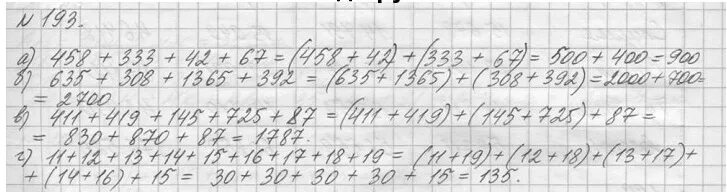 N 193.
а) 458 + 333 + 42 + 67 = (458 + 42) + (333 + 67) = 500 + 400 = 900
б) 635 + 308 + 1365 + 392 = (635 + 1365) + (308 + 392) = 2000 + 700 =
= 2700
в) 411 + 419 + 145 + 725 + 87 = (411 + 419) + (145 + 725) + 87 =
= 830 + 870 + 87 = 1787.
г) 11 + 12 + 13 + 14 + 15 + 16 + 17 + 18 + 19 = (11 + 19) + (12 + 18) + (13 + 17) +
+ (14 + 16) + 15 = 30 + 30 + 30 + 30 + 15 = 135.